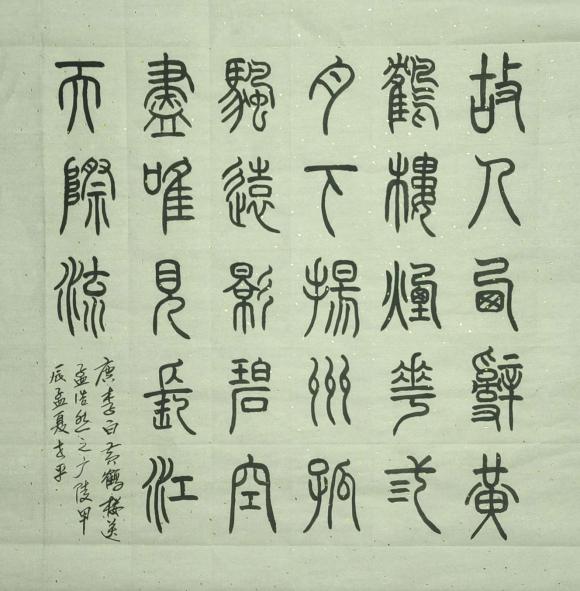 故人西辭黃
鶴樓煙華弎
月下揚州孤
颿遠影碧空
盡唯見長江
天際流
唐李白黄鶴楼送
孟浩然之广陵甲
辰孟夏平